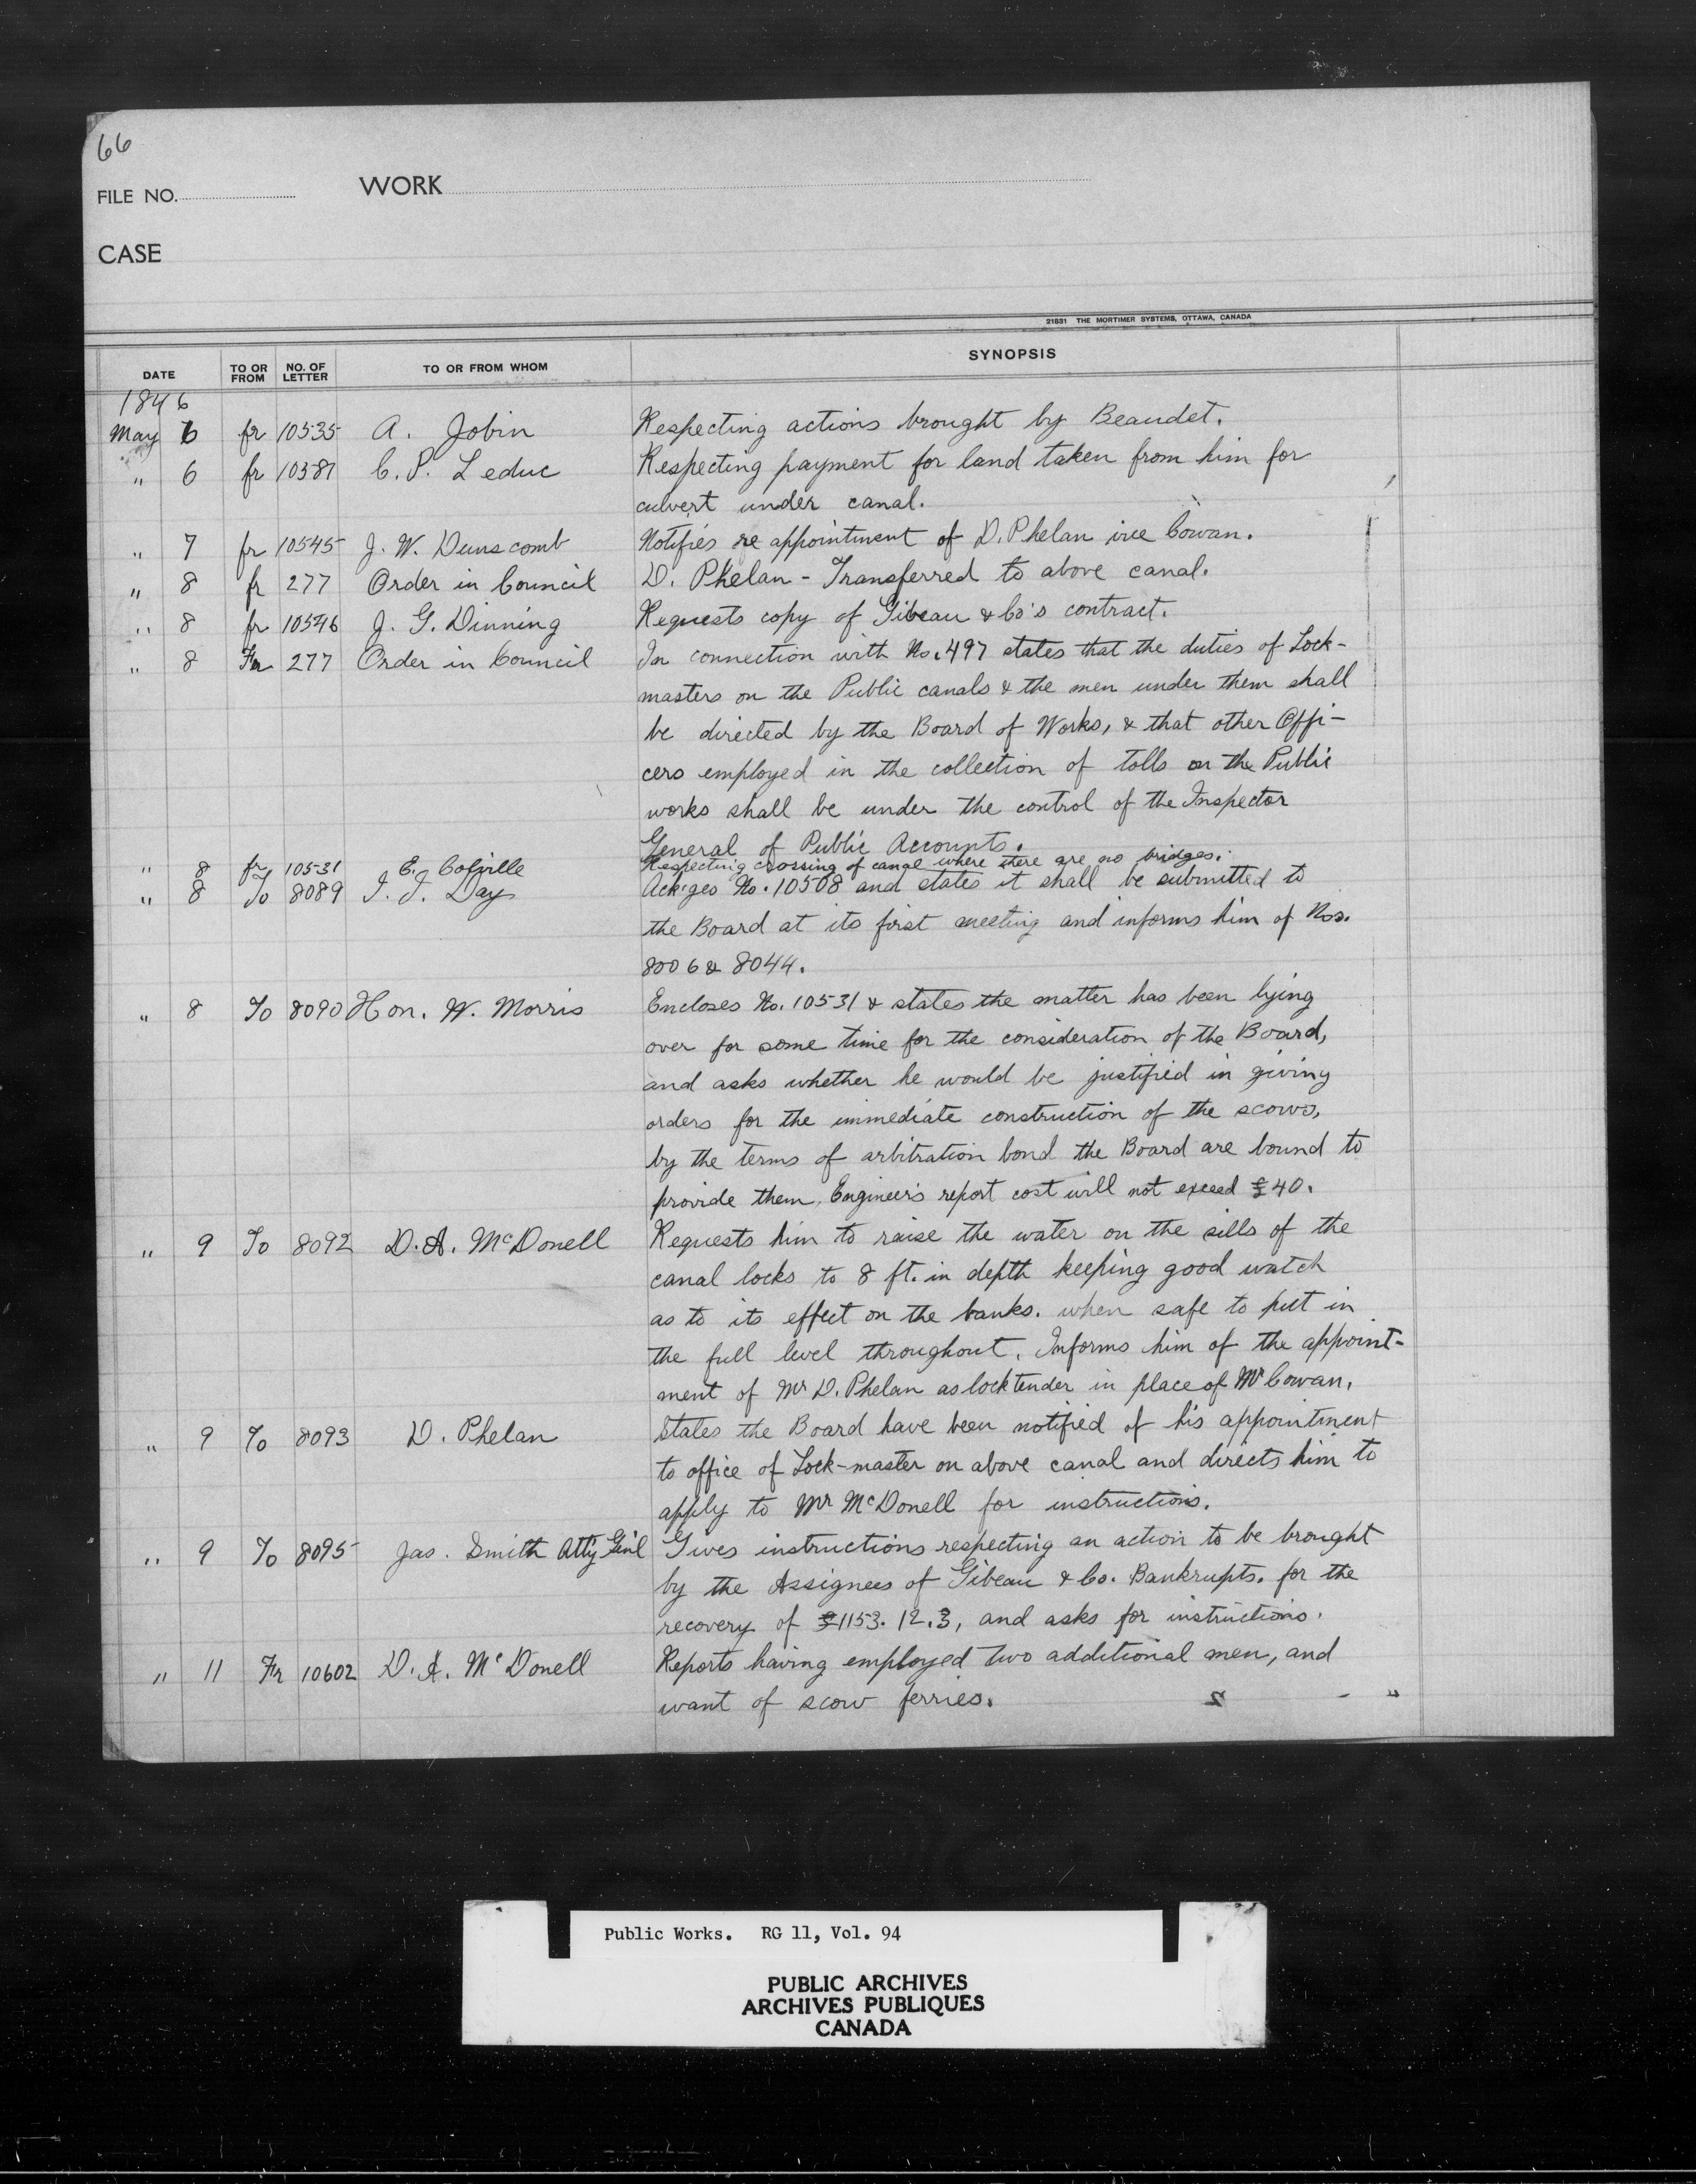 66
FILE NO. WORK
CASE
21831 THE MORTIMER SYSTEMS, OTTAWA, CANADA
DATE TO OR FROM NO. OF LETTER TO OR FROM WHOM SYNOPSIS
1846
May 6 fr 10535 A. Jobin Respecting actions brought by Beaudet.
" 6 fr 10587 C. P. Leduc Respecting payment for land taken from him for
culvert under canal.
" 7 fr 10545 J. W. Dunscomb Notifies re appointment of D. Phelan vice Cowan.
" 8 fr 277 Order in Council D. Phelan - Transferred to above canal.
" 8 fr 10546 J. G. Dinning Requests copy of Gibeau & Co's contract.
" 8 Fr 277 Order in Council In connection with No. 497 states that the duties of Lock-
masters on the Public canals & the men under them shall
be directed by the Board of Works, & that other Offi-
cers employed in the collection of tolls on the Public
works shall be under the control of the Inspector
General of Public Accounts.
" 8 fr 10531 E. Colville Respecting crossing of canal where there are no bridges.
" 8 To 8089 I. J. Day Ack'ges No. 10508 and states it shall be submitted to
the Board at its first meeting and informs him of Nos.
8006 & 8044.
" 8 To 8090 Hon. W. Morris Encloses No. 10531 & states the matter has been lying
over for some time for the consideration of the Board,
and asks whether he would be justified in giving
orders for the immediate construction of the scows,
by the terms of arbitration bond the Board are bound to
provide them, Engineer's report cost will not exceed £40.
" 9 To 8092 D. A. McDonell Requests him to raise the water on the sills of the
canal locks to 8 ft. in depth keeping good watch
as to its effect on the banks. when safe to put in
the full level throughout. Informs him of the appoint-
ment of Mr D. Phelan as locktender in place of Mr Cowan.
" 9 To 8093 D. Phelan States the Board have been notified of his appointment
to office of Lock-master on above canal and directs him to
apply to Mr McDonell for instructions.
" 9 To 8095 Jas. Smith Atty Genl Gives instructions respecting an action to be brought
by the Assignees of Gibeau & Co. Bankrupts. for the
recovery of £1153. 12. 3, and asks for instructions.
" 11 Fr 10602 D. A. McDonell Reports having employed two additional men, and
want of scow ferries.
Public Works. RG 11, Vol. 94
PUBLIC ARCHIVES
ARCHIVES PUBLIQUES
CANADA